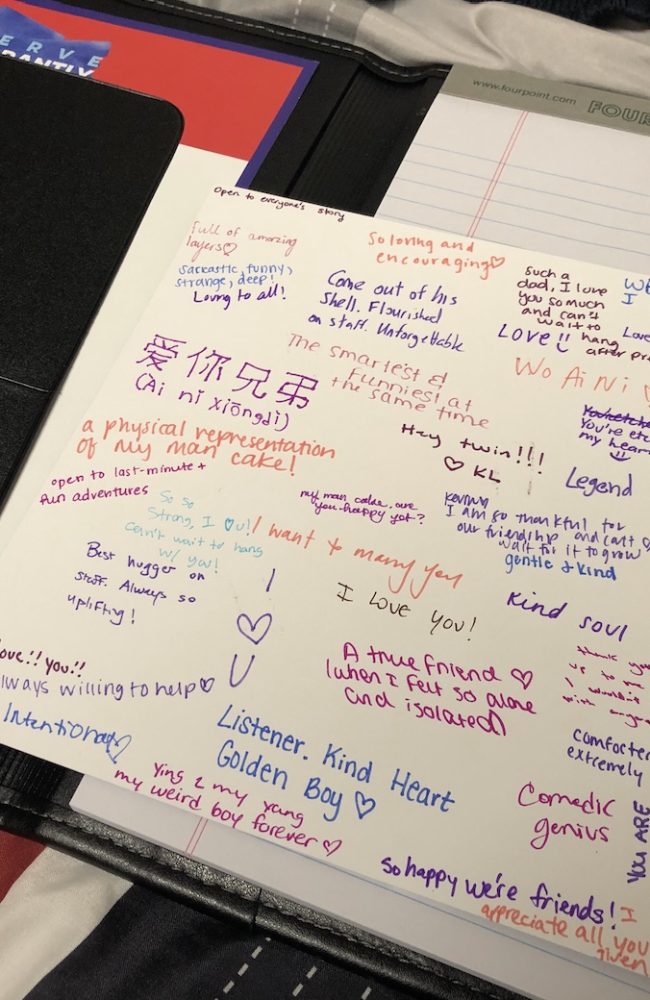 ERVE
www.fourpoint.com
FOUR
Open to everyone's story
Full of amazing
layers♡
Sarcastic, funny,
strange, deep!
Loving to all!
So loving and
encouraging♡
Come out of his
shell. Flourished
on staff. Unforgettable
Such a
dad, I love
you so much
and can't
wait to
hang
after
LOVE!!
I
Love
爱你兄弟
(Ai ni xiōngdi)
The smartest &
Funniest at
the same time
Wo Ai Ni
You're
my heart
a physical representation
of my man cake!
Hey twin!!!
♡ KL
Legend
open to last-minute +
fun adventures
So so
Strong, I ♡ u!
Can't wait to hang
w/ you!
my man cake, are
you happy yet?
I am so thankful for
our friendship and can't
wait for it to grow
gentle & kind
I want to marry you
Best hugger on
staff. Always so
uplifting!
I
♡
U
I love you!
Kind soul
A true friend ♡
(when I felt so alone
and isolated)
thank you
love!! you!!
always willing to help♡
Intentional♡
Listener. Kind Heart
Golden Boy ♡
extremely
Ying 2 my yang
my weird boy forever♡
Comedic
genius
YOU ARE
So happy we're friends!
I
appreciate all you